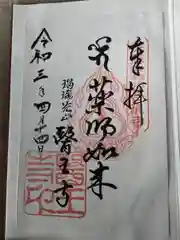 奉拝
薬師如来
瑠璃光山
醫王寺
令和三年四月十四日